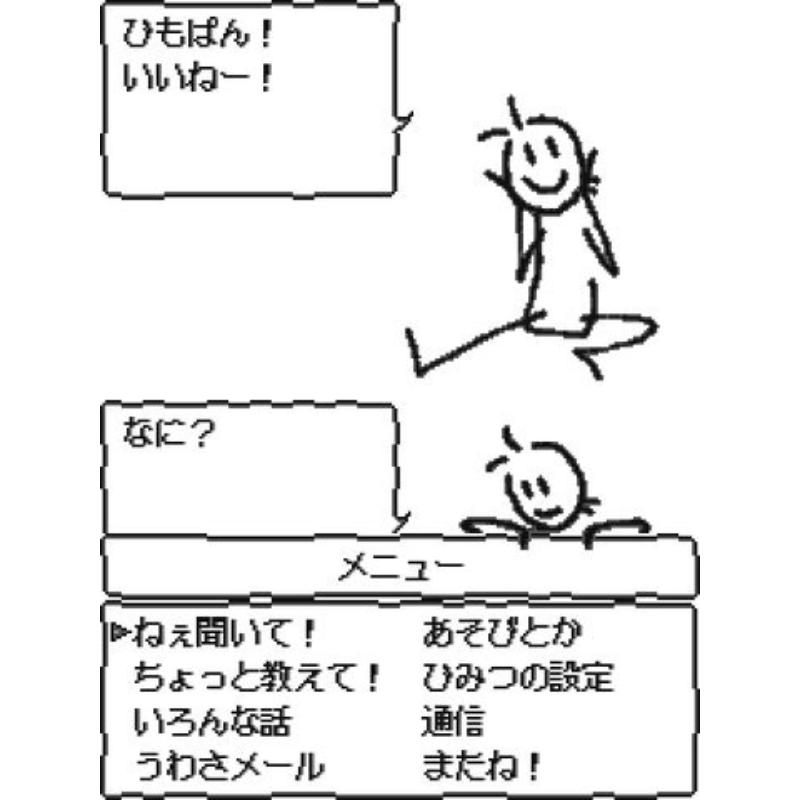 ひもぱん！
いいねー！
なに？
メニュー
ねぇ聞いて！
あそびとか
ちょっと教えて！
ひみつの設定
いろんな話
通信
うわさメール
またね！